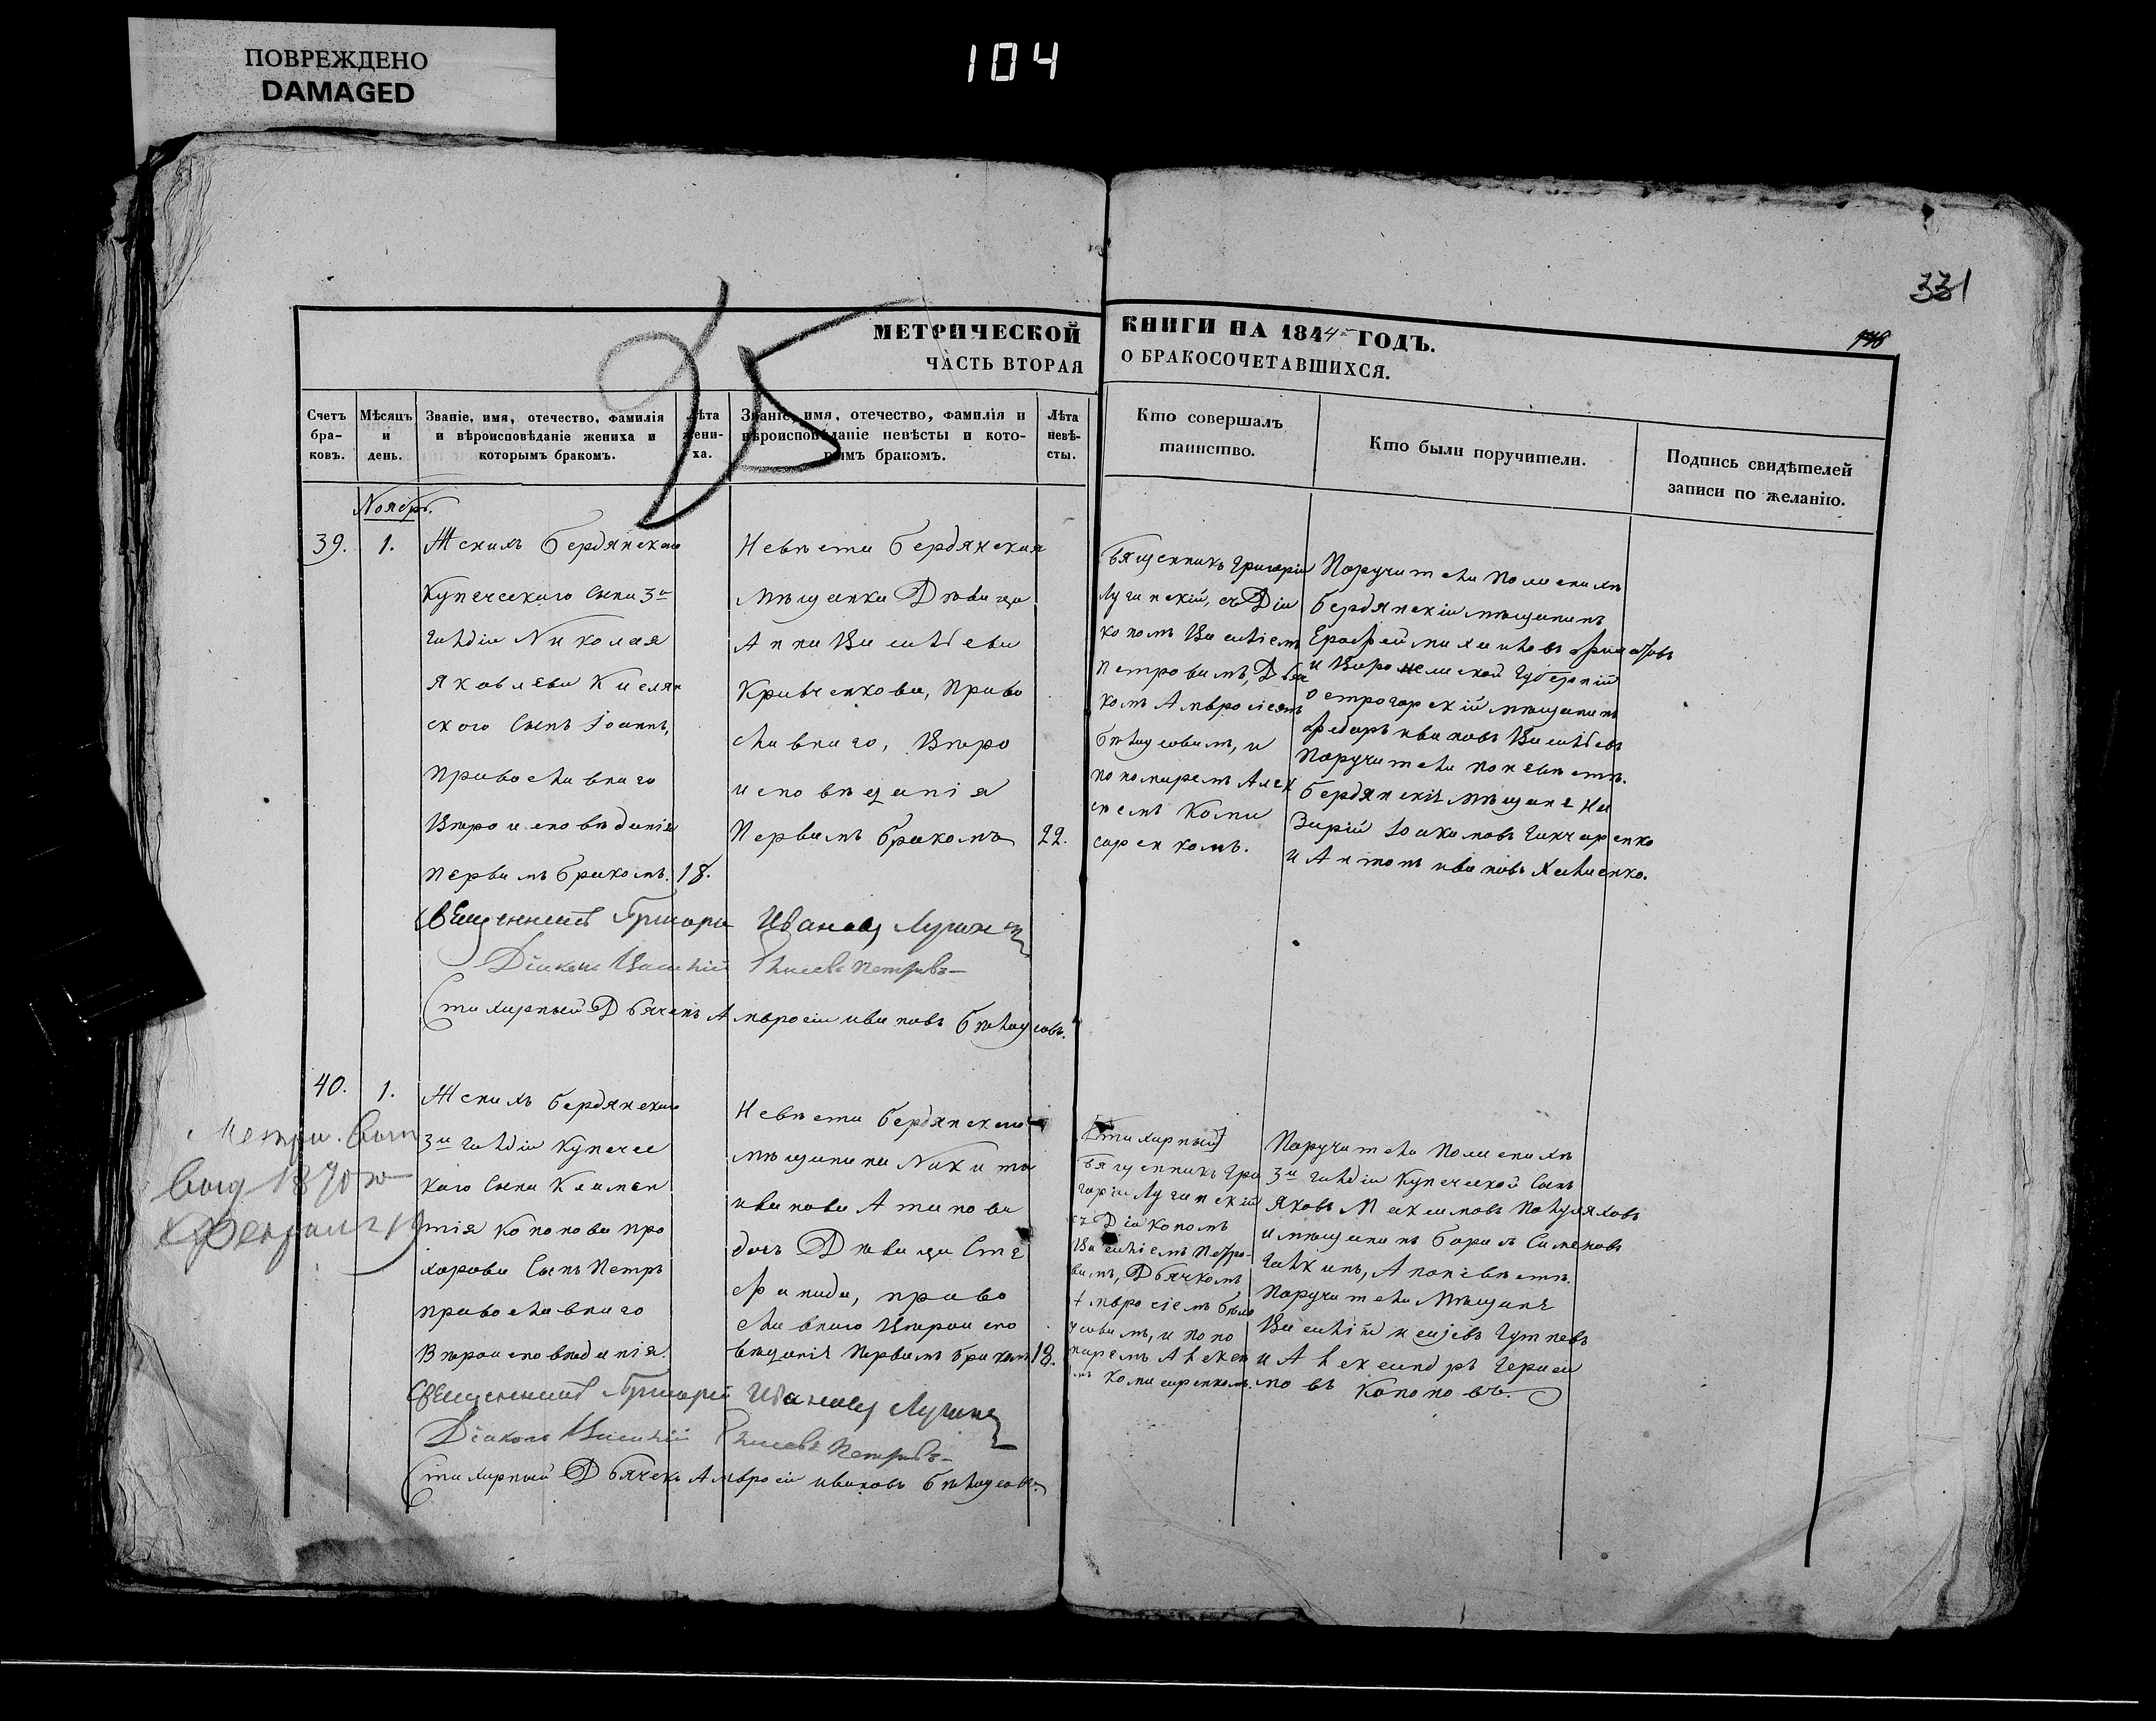 ПОВРЕЖДЕНО
DAMAGED
104
331
МЕТРИЧЕСКОЙ КНИГИ НА 1844 ГОДЪ.
ЧАСТЬ ВТОРАЯ О БРАКОСОЧЕТАВШИХСЯ.
Счетъ бра-ковъ.
Мѣсяцъ и день.
Званіе, имя, отечество, фамилія
и вѣроисповѣданіе жениха и
которымъ бракомъ.
Лѣта
жени-
ха.
Званіе, имя, отечество, фамилія и
вѣроисповѣданіе невѣсты и кото-
рымъ бракомъ.
Лѣта
невѣ-
сты.
Кто совершалъ
таинство.
Кто были поручители.
Подпись свидѣтелей
записи по желанію.
Ноябрь.
39. 1.
Женихъ Бердянскаго
Купеческаго сына 3й
гилдіи Николая
Яковлева
скаго сынъ Іоаннъ,
православнаго
Вѣроисповѣданія
первымъ бракомъ. 18.
Невѣста Бердянская
мѣщанка Дѣвица
Анна Василіева
Кривченкова, право
славнаго, Вѣро
исповѣданія
Первымъ бракомъ 22.
Священникъ Григорій
Лугинскій, съ Діа
кономъ Василіемъ
Петровымъ, Дьяч
комъ Амвросіемъ
и
пономаремъ Алек
сѣемъ Коми
саренкомъ.
Поручители по женихѣ
бердянскій мѣщанинъ
Ерофей Михаиловъ
и Воронежской Губерніи
Острогорскій мѣщанинъ
Федоръ Ивановъ Василіевъ
Поручители по невѣстѣ.
бердянскіе мѣщане На
зарій Іоакимовъ Ганчаренко
и Антонъ Ивановъ
Священникъ Григорій Ивановъ Лугинскій
Діаконъ Василій Петровъ
Стихарный Дьячекъ Амвросій Ивановъ
40. 1.
Женихъ бердянскаго
3й гилдіи Купечес
каго сына Климен
тія Кононова про
хорова сынъ Петръ
православнаго
Вѣроисповѣданія.
Невѣста бердянскаго
мѣщанина Никиты
Иванова
дочь Дѣвица Сте
фанида, право
славнаго Вѣроиспо
вѣданія Первымъ бракомъ 18.
[Стихарный]
Священникъ Гри
горій Лугинскій
съ Діакономъ
Василіемъ Петро-
вымъ, Дьячкомъ
Амвросіемъ
и поно
маремъ Алексѣе
мъ Комисаренкомъ.
Поручители по женихѣ
3й гилдіи Купеческой сынъ
Яковъ Максимовъ
и мѣщанинъ Борисъ Сименовъ
Галкинъ, А по невѣстѣ.
Поручители Мѣщане
Василій
и Александръ Гераси
мовъ Кононовъ.
Священникъ Григорій Ивановъ Лугинскій
Діаконъ Василій Петровъ
Стихарный Дьячекъ Амвросій Ивановъ
1870